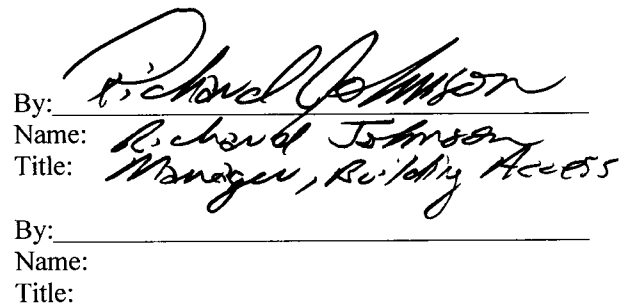 By: Richard Johnson
Name: Richard Johnson
Title: Manager, Building Access
By:
Name:
Title: